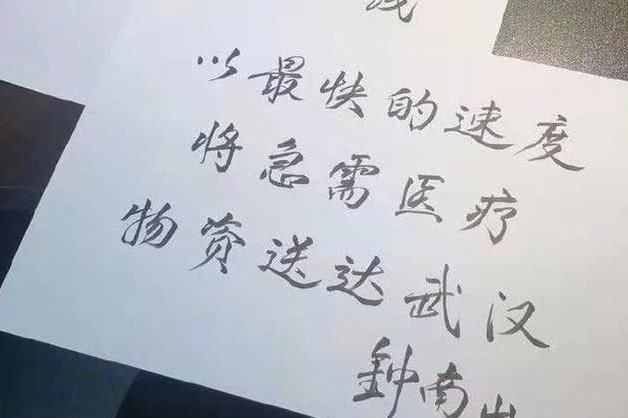 以最快的速度
将急需医疗
物资送达武汉
鈡南